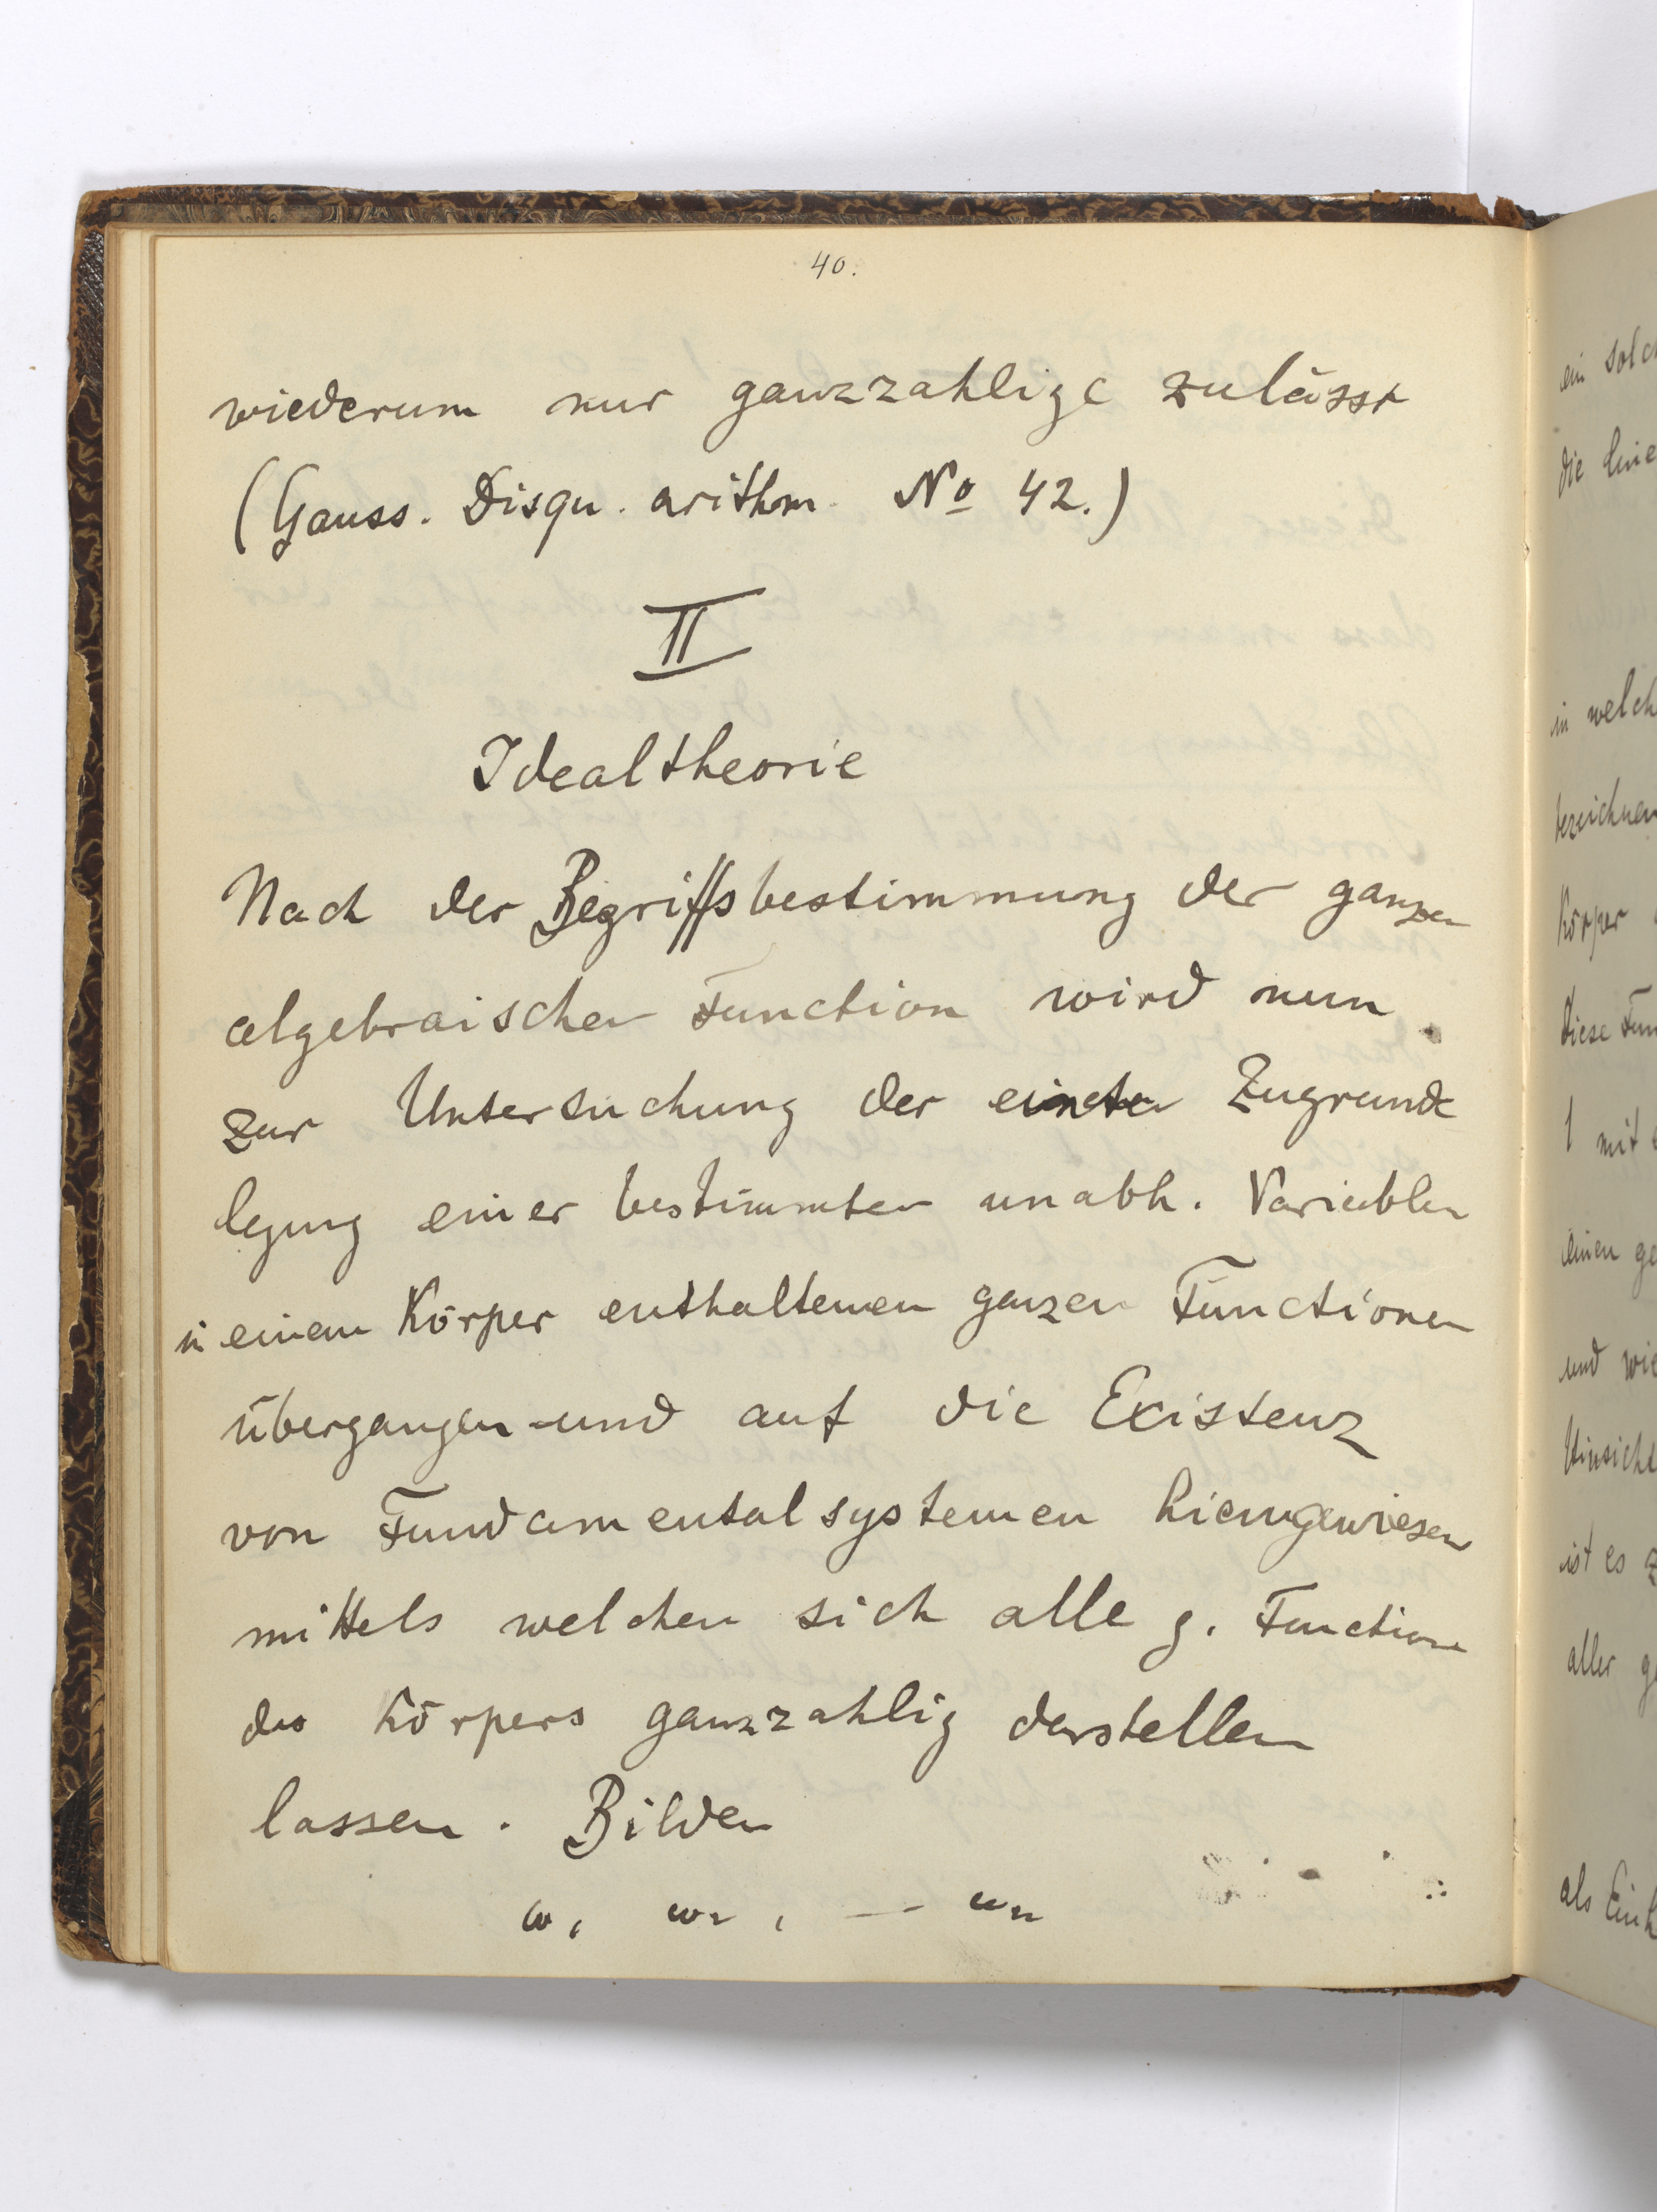 40.
wiederum nur ganzzahlige zulässt
(Gauss. Disqu. arithm. No 42.)
II
Idealtheorie
Nach der Begriffsbestimmung der ganzen
algebraischen Function wird nun
zur Untersuchung der Zugrunde
legung einer bestimmten unabh. Variablen
in einem Körper enthaltenen ganzen Functionen
übergangen und auf die Existenz
von Fundamentalsystemen hiengewiesen
mittels welchen sich alle g. Function
des Körpers ganzzahlig darstellen
lassen. Bilden
ω, ω2, — ωn
ein solch
die line
in welch
bezeichnen
Körper
diese Fun
1 mit
einen ge
und wie
Hinsicht
ist es z
aller g
als Einh